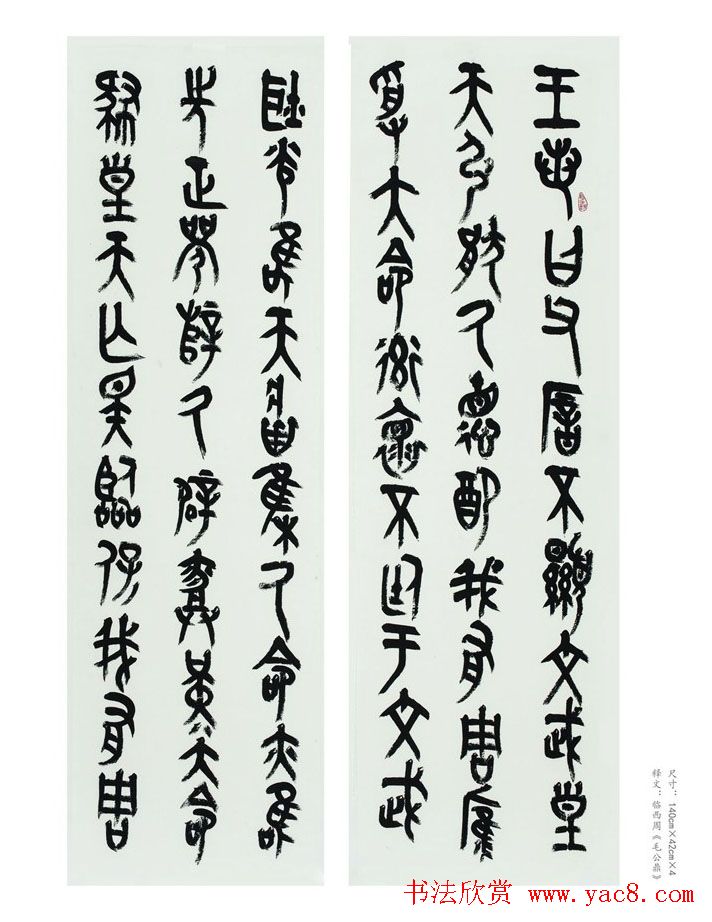 王若曰父厝不顯文武皇
天引猒厥德配我有周膺
受大命率懷不閈于文武
耿光唯天將集厥命亦唯
先正襄辥厥辟堇大命
肆皇天亡斁臨保我有周
尺寸：140cm×42cm×4
释文：临西周《毛公鼎》
书法欣赏 www.yac8.com